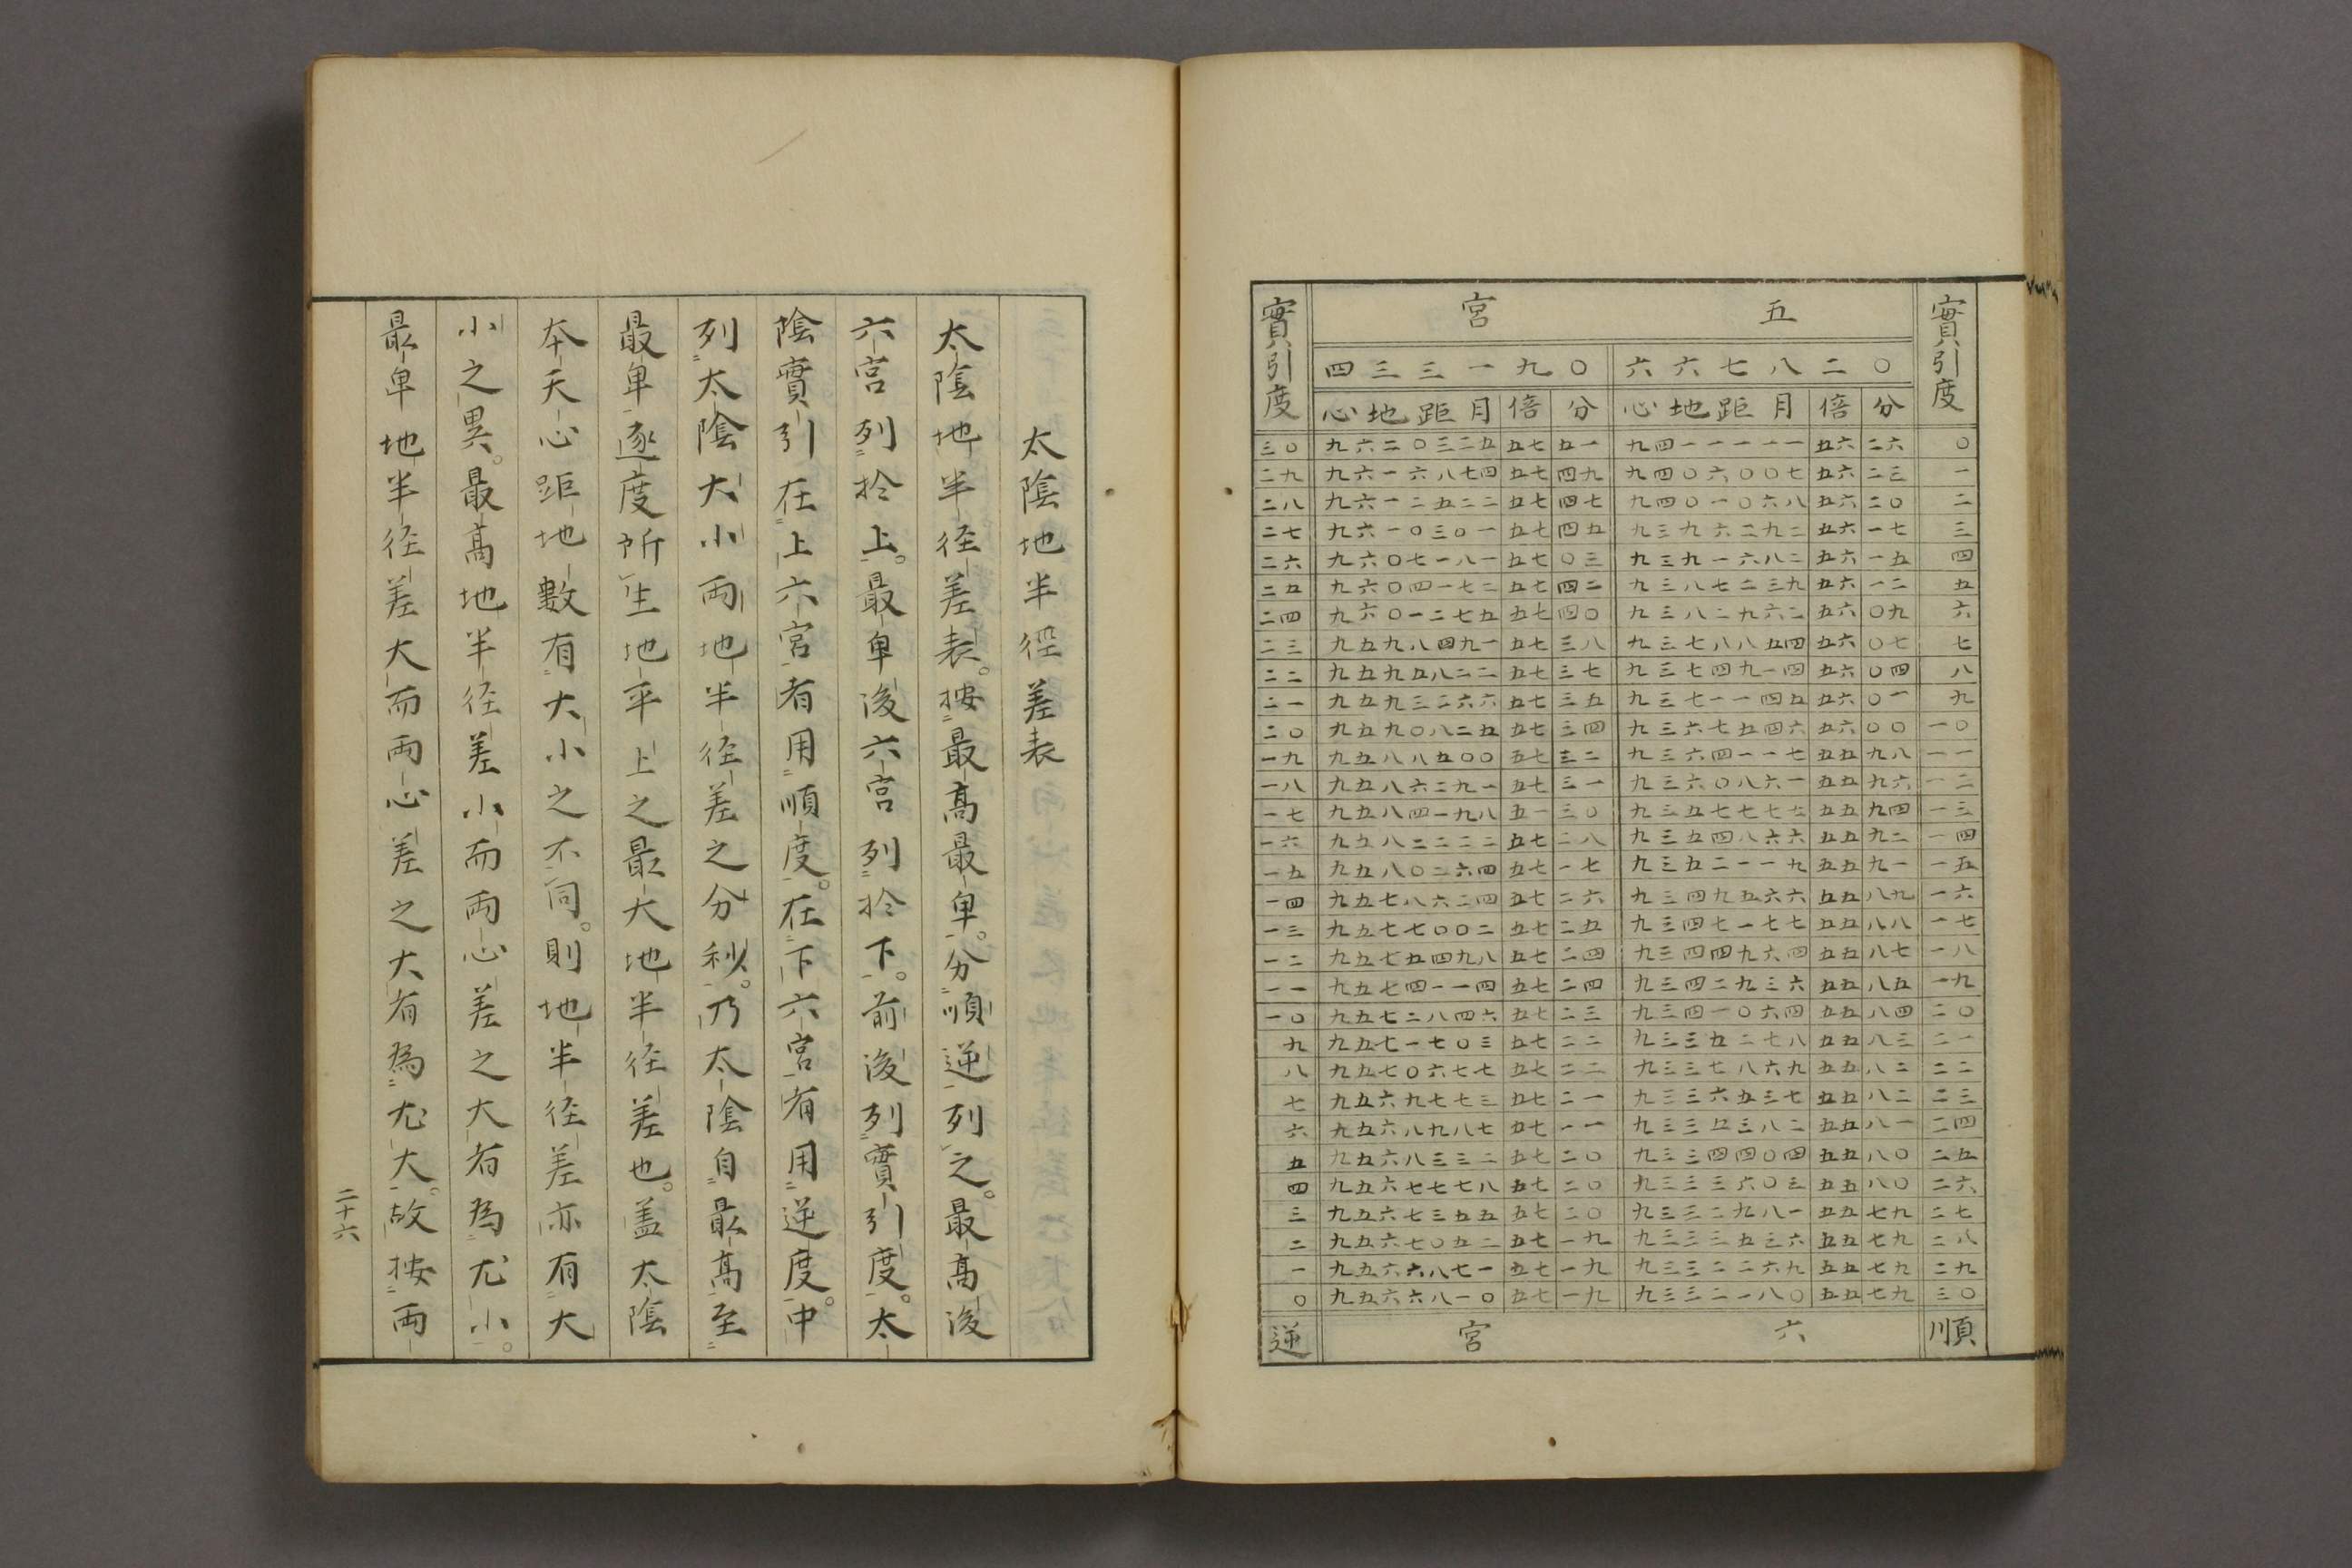 實引度 五宮 實引度
四三三一九〇 六六七八二〇
分 倍 月距地心 分 倍 月距地心
三〇 九六二〇三二五 五七 五一 九四一一一一一 五六 二六 〇
二九 九六一六八七四 五七 四九 九四〇六〇〇七 五六 二三 一
二八 九六一二五二二 五七 四七 九四〇一〇六八 五六 二〇 二
二七 九六一〇三〇一 五七 四五 九三九六二九二 五六 一七 三
二六 九六〇七一八一 五七 〇三 九三九一六八二 五六 一五 四
二五 九六〇四一七二 五七 四二 九三八七二三九 五六 一二 五
二四 九六〇一二七五 五七 四〇 九三八二九六二 五六 〇九 六
二三 九五九八四九一 五七 三八 九三七八八五四 五六 〇七 七
二二 九五九五八二二 五七 三七 九三七四九一四 五六 〇四 八
二一 九五九三二六六 五七 三五 九三七一一四五 五六 〇一 九
二〇 九五九〇八二五 五七 三四 九三六七五四六 五六 〇〇 一〇
一九 九五八八五〇〇 五七 三二 九三六四一一七 五五 九八 一一
一八 九五八六二九一 五七 三一 九三六〇八六一 五五 九六 一二
一七 九五八四一九八 五一 三〇 九三五七七七七 五五 九四 一三
一六 九五八二二二二 五七 二八 九三五四八六六 五五 九二 一四
一五 九五八〇二六四 五七 一七 九三五二一一九 五五 九一 一五
一四 九五七八六二四 五七 二六 九三四九五六六 五五 八九 一六
一三 九五七七〇〇二 五七 二五 九三四七一七七 五五 八八 一七
一二 九五七五四九八 五七 二四 九三四四九六四 五五 八七 一八
一一 九五七四一一四 五七 二四 九三四二九三六 五五 八五 一九
一〇 九五七二八四六 五七 二三 九三四一〇六四 五五 八四 二〇
九 九五七一七〇三 五七 二二 九三三五二七八 五五 八三 二一
八 九五七〇六七七 五七 二二 九三三七八六九 五五 八二 二二
七 九五六九七七三 五七 二一 九三三六五三七 五五 八二 二三
六 九五六八九八七 五七 一一 九三三五三八二 五五 八一 二四
五 九五六八三三二 五七 二〇 九三三四四〇四 五五 八〇 二五
四 九五六七七七八 五七 二〇 九三三三六〇三 五五 八〇 二六
三 九五六七三五五 五七 二〇 九三三二九八一 五五 七九 二七
二 九五六七〇五二 五七 一九 九三三三五三六 五五 七九 二八
一 九五六六八七一 五七 一九 九三三二二六九 五五 七九 二九
〇 九五六六八一〇 五七 一九 九三三二一八〇 五五 七九 三〇
順 六宮 逆
太陰地半徑差表
太陰地半径差表。按最高最卑。分順逆列之。最高後
六宮列於上。最卑後六宮列於下。前後列實引度。太
陰實引在上六宮者用順度。在下六宮者用逆度。中
列太陰大小両地半径差之分秒。乃太陰自最高至
最卑逐度所生地平上之最大地半径差也。盖太陰
本天心距地數有大小之不同。則地半径差亦有大
小之異。最高地半径差小而両心差之大者為尤小。
最卑地半径差大而両心差之大者為尤大。故按両
二十六